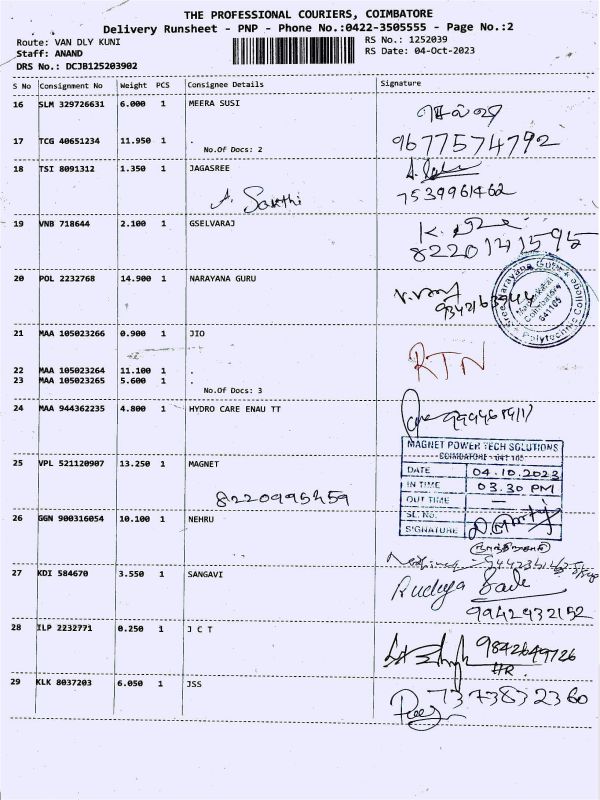 THE PROFESSIONAL COURIERS, COIMBATORE
Delivery Runsheet - PNP - Phone No.:0422-3505555 - Page No.:2
Route: VAN DLY KUNI RS No.: 1252039
Staff: ANAND RS Date: 04-Oct-2023
DRS No.: DCJB125203902
S No Consignment No Weight PCS Consignee Details Signature
16 SLM 329726631 6.000 1 MEERA SUSI
17 TCG 40651234 11.950 1 . 9677574792
No.Of Docs: 2
18 TSI 8091312 1.350 1 JAGASREE
A. Sarthi 7539961462
19 VNB 718644 2.100 1 GSELVARAJ
8220141595
20 POL 2232768 14.900 1 NARAYANA GURU
Sree Narayana Guru Polytechnic College
Coimbatore
641105
21 MAA 105023266 0.900 1 JIO
RTN
22 MAA 105023264 11.100 1 .
23 MAA 105023265 5.600 1 .
No.Of Docs: 3
24 MAA 944362235 4.800 1 HYDRO CARE ENAU TT
MAGNET POWER TECH SOLUTIONS
COIMBATORE - 641 105
DATE 04.10.2023
IN TIME 03.30 PM
OUT TIME —
SL. No.
SIGNATURE
25 VPL 521120907 13.250 1 MAGNET
8220995459
26 GGN 900316054 10.100 1 NEHRU
27 KDI 584670 3.550 1 SANGAVI
9942932152
28 ILP 2232771 0.250 1 J C T
9842649726
HR.
29 KLK 8037203 6.050 1 JSS
7373832360